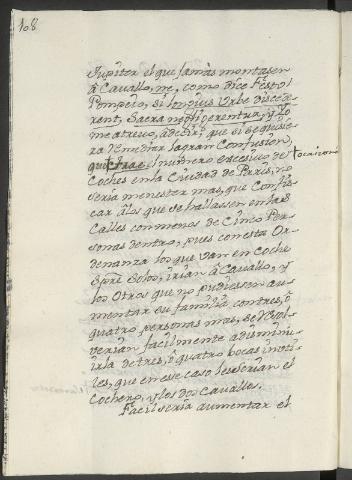 108
Jupiter el que jamàs montasen
â Cavallo, ne, como dice Festo
Pompeio, si longius Urbe discede-
rent, Sacra negligerentur, y Yo
me atrevo, â decir que si se quisie-
ra remediar la gran Confusion,
que trae el numero excesivo de † ocasiona
Coches en la Ciudad de Paris, no
seria menester mas, que Confis-
car â los que se hallasen en las
Calles con menos de Cinco Per-
sonas dentro, pues con esta Or-
denanza los que van en Coche
Spre Solos, irian â Cavallo, y
los Otros que no pudiesen au-
mentar su familia con tres, ò
quatro personas mas, se Resol-
verian facilmente a disminu-
irla de tres, ô quatro bocas inuti-
les, que en ese caso les serian el
Cochero, y los dos Cavallos.
Facil seria aumentar el